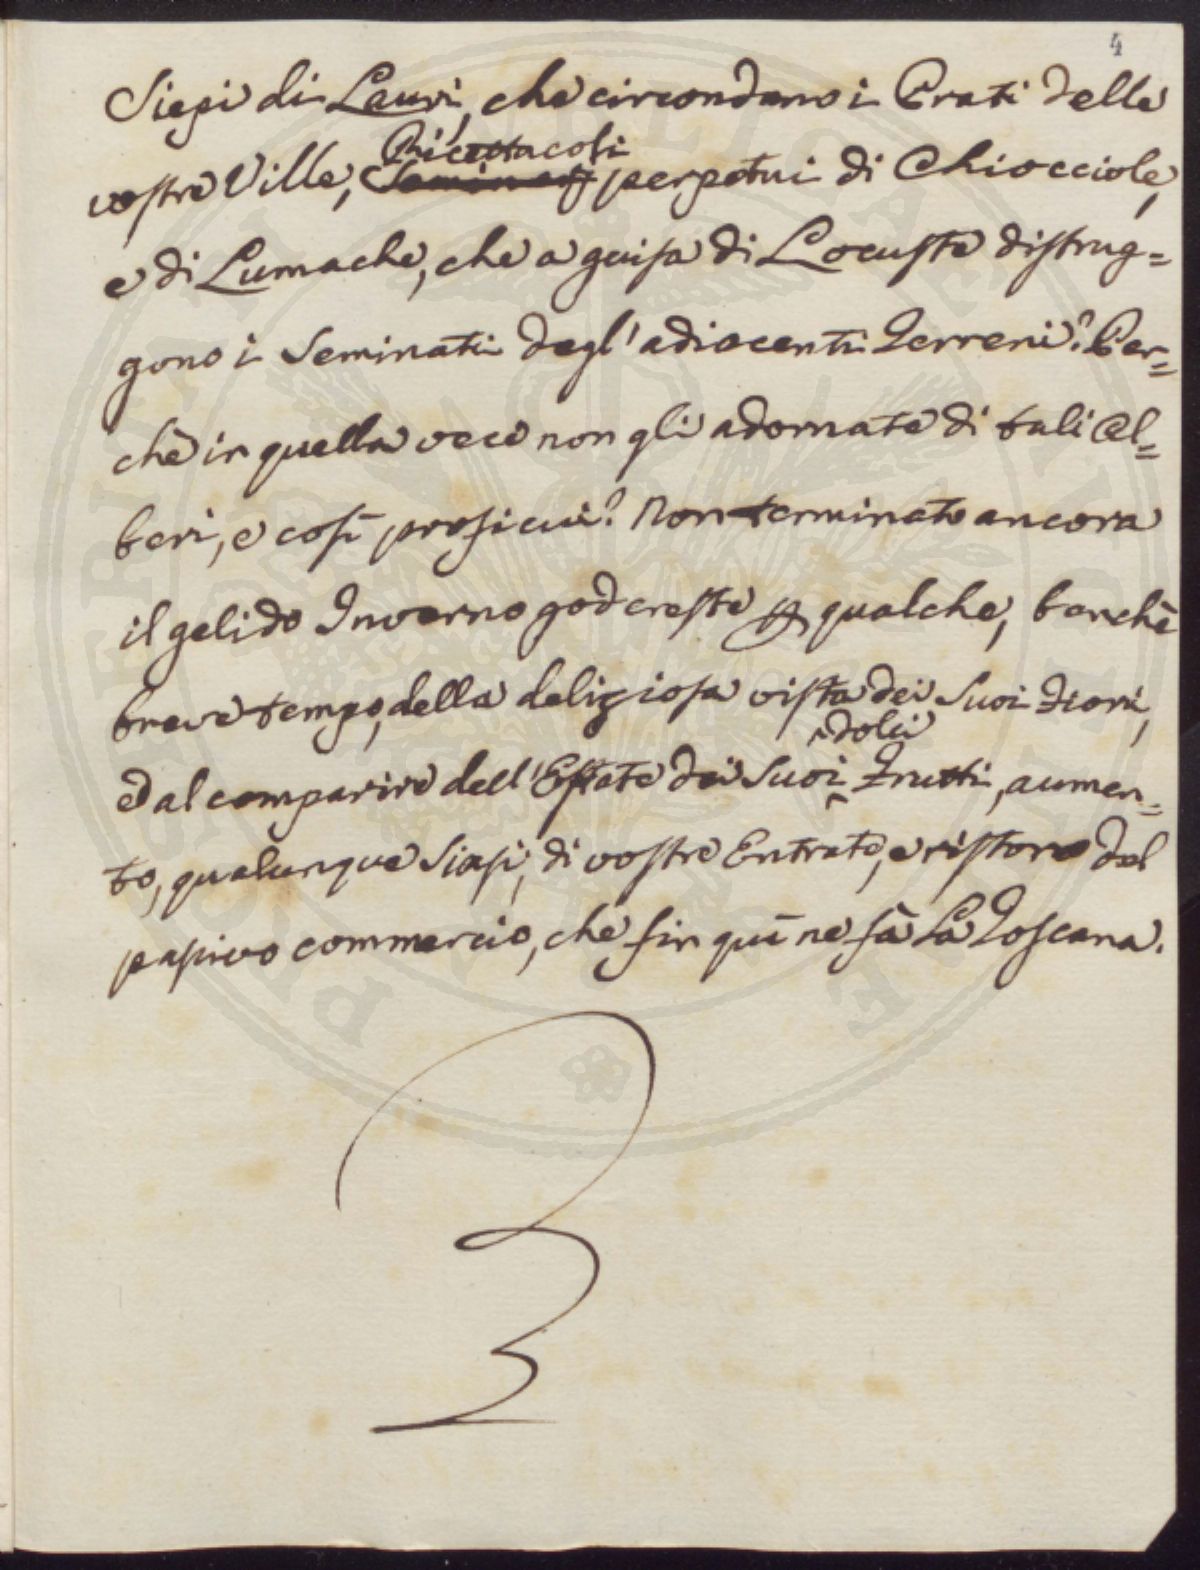 4
Siepi di Lauri, che circondano i Prati delle
Ricettacoli
vostre Ville, perpetui di Chiocciole,
e di Lumache, che a guisa di Locuste distrug=
gono i Seminati degl' adiacenti Terreni? Per=
chè in quella vece non gli adornate di tali Al=
beri, e così prosicui? Non terminato ancora
il gelido Inverno godereste p qualche, benchè
breve tempo, della deliziosa vista dei Suoi Fiori,
dolci
e dal comparire dell' Estate dei Suoi Frutti, aumen=
to, qualunque Siasi, di vostre Entrate, e ristoro del
passivo commercio, che fin quì ne fà La Toscana.